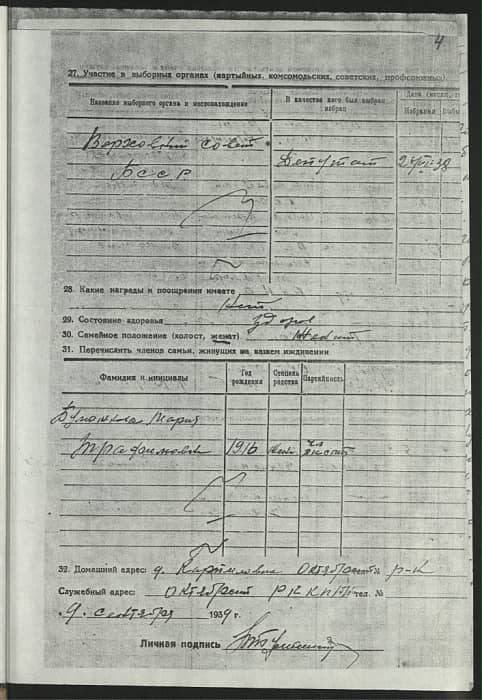 4
27. Участие в выборных органах (партийных, комсомольских, советских, профсоюзных)
Название выборного органа и местонахождение
В качестве кого был выбран
избран
Дата (месяц,
Избрания
Верховный совет
Депутат
БССР
28. Какие награды и поощрения имеете
Нет
29. Состояние здоровья здоров
30. Семейное положение (холост, женат) Женат
31. Перечислить членов семьи, живущих на вашем иждивении
Фамилия и инициалы
Год рождения
Степень родства
Партийность
Мария
1916
32. Домашний адрес: д.
р-н
Служебный адрес:
РК КП(б)Б тел. №
9. сентября 1939 г.
Личная подпись